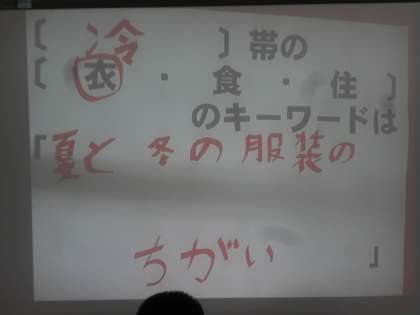 〔 冷 〕帯の
〔 衣 ・ 食 ・ 住 〕
のキーワードは
『夏と 冬の服装の
ちがい 』